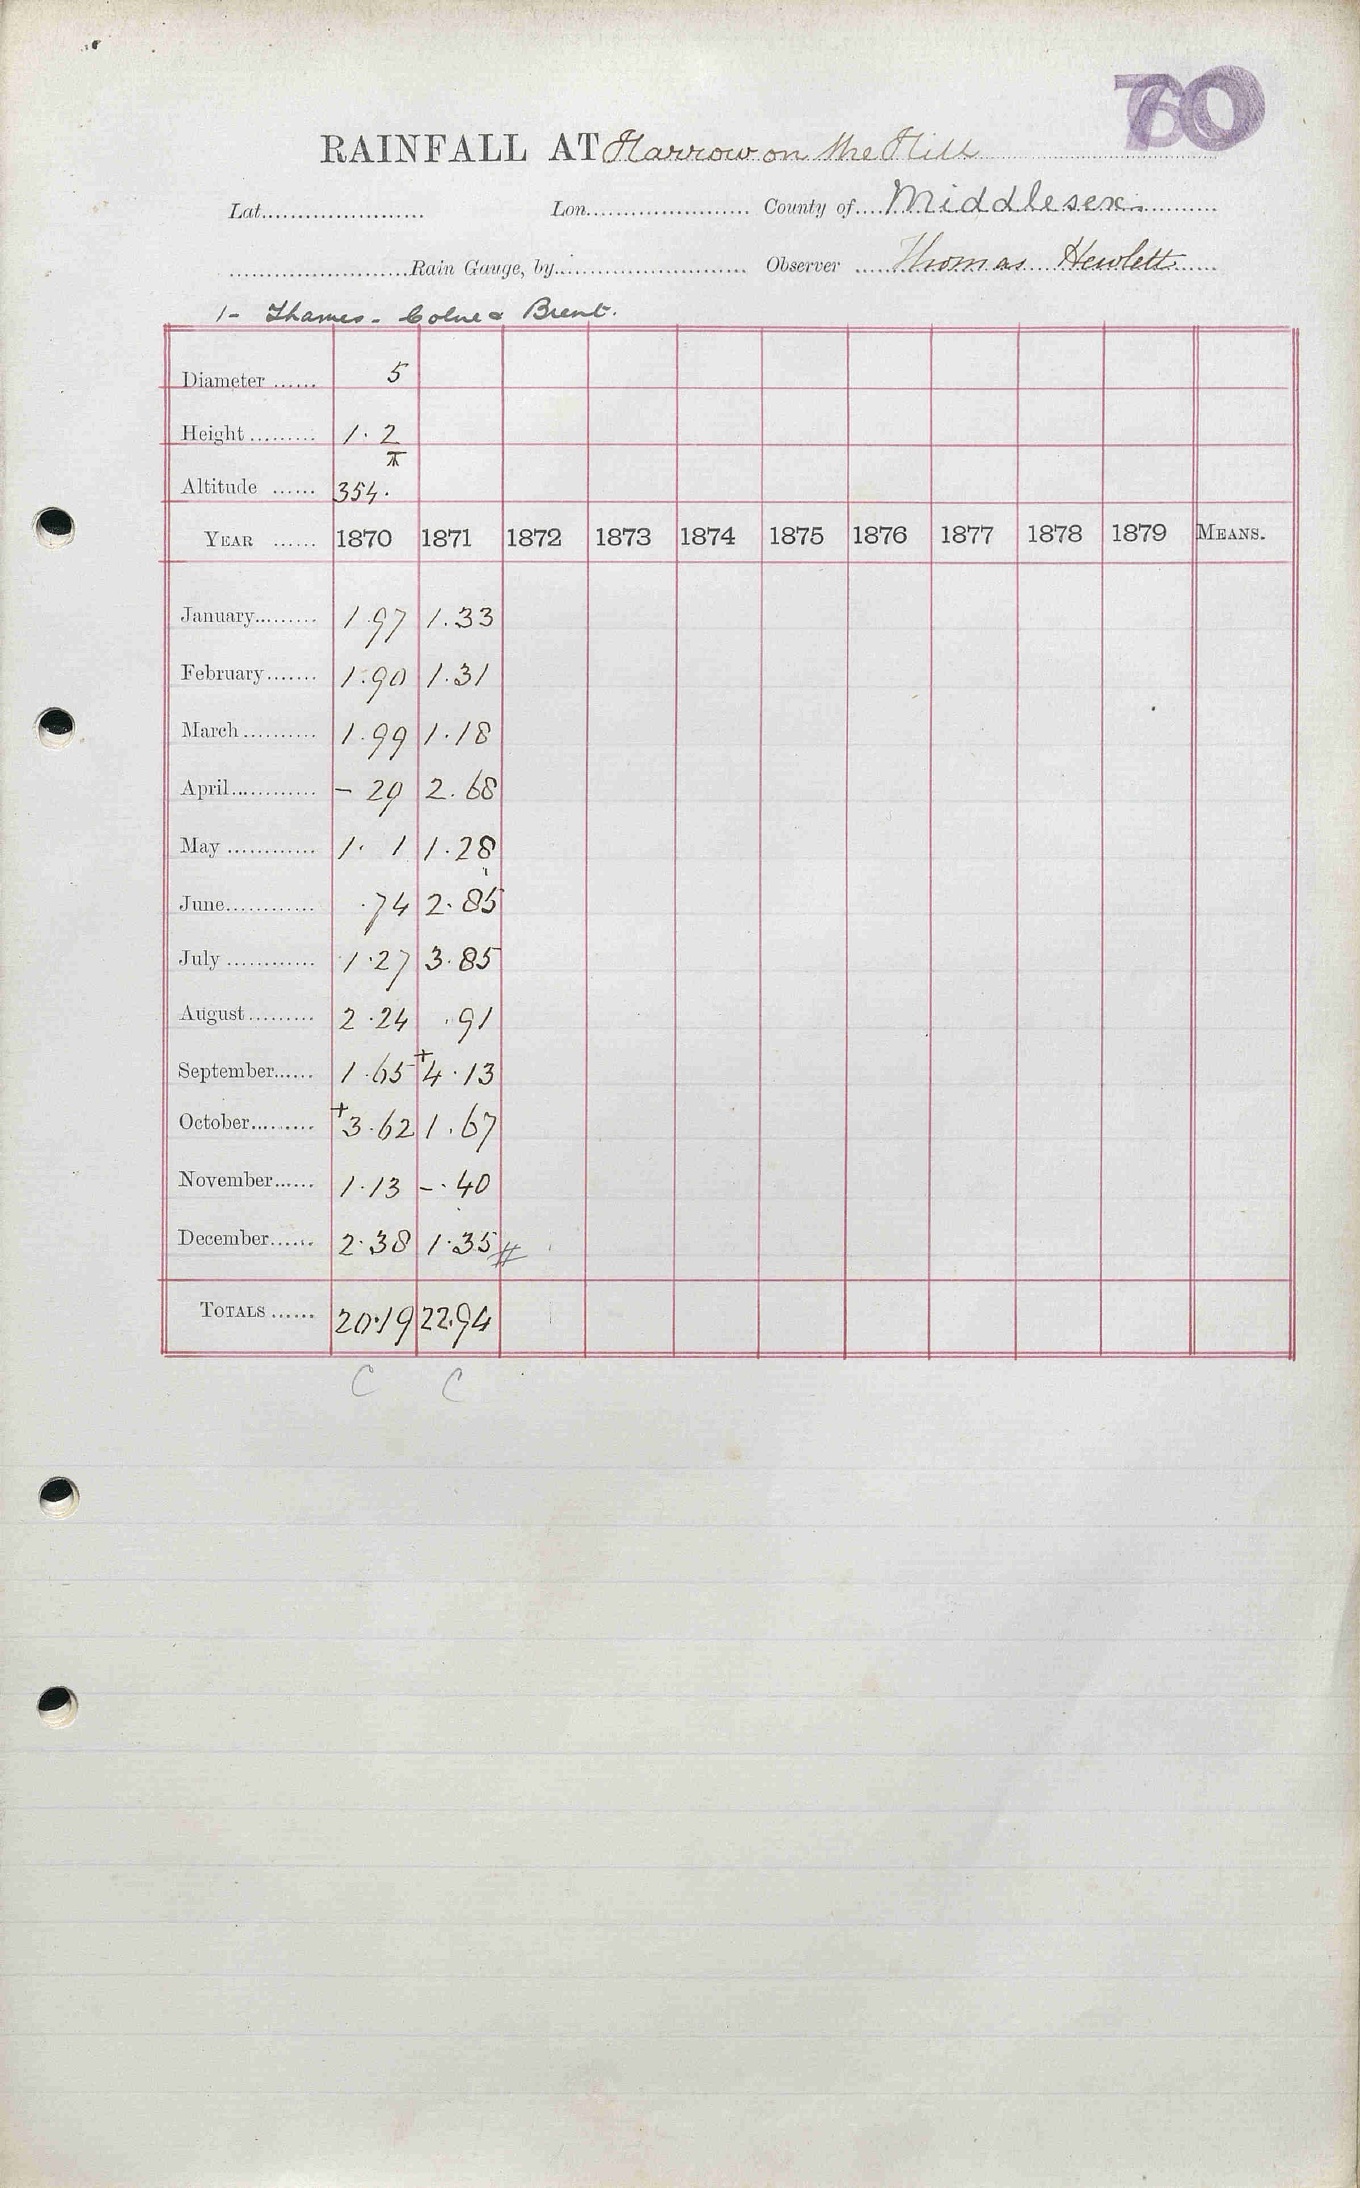 70
RAINFALL AT Harrow on the Hill
Lat. Lon. County of Middlesex.
Rain Gauge, by Observer Thomas Hewlett
1- Thames - Colne & Brent.
Diameter 5
Height 1. 2
Altitude 354.
YEAR 1870 1871 1872 1873 1874 1875 1876 1877 1878 1879 MEANS.
January 1.97 1.33
February 1.90 1.31
March 1.99 1.18
April - 29 2.68
May 1. 1 1.28
June .74 2.85
July 1.27 3.85
August 2.24 .91
September 1.65 +4.13
October +3.62 1.67
November 1.13 -.40
December 2.38 1.35 #
TOTALS 20.19 22.94
C C